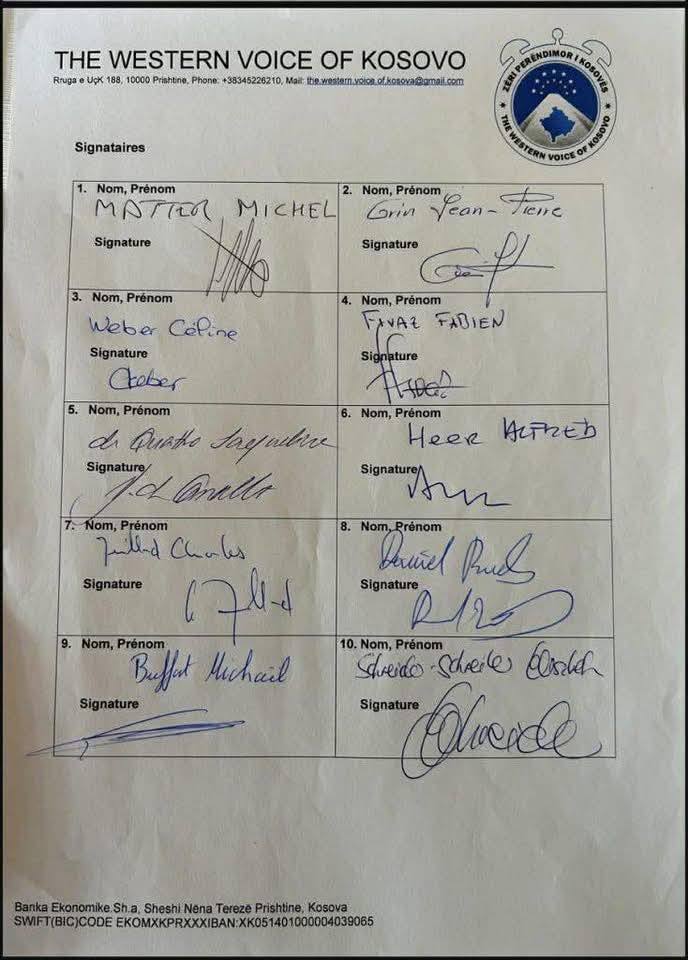 THE WESTERN VOICE OF KOSOVO
Rruga e UçK 188, 10000 Prishtine, Phone: +38345226210, Mail: the.western.voice.of.kosova@gmail.com
ZËRI PERËNDIMOR I KOSOVËS
THE WESTERN VOICE OF KOSOVO
Signataires
1. Nom, Prénom
MATTER MICHEL
Signature
2. Nom, Prénom
Grin Jean-Pierre
Signature
3. Nom, Prénom
Weber Céline
Signature
CWeber
4. Nom, Prénom
FIVAZ FABIEN
Signature
5. Nom, Prénom
de Quattro Jacqueline
Signature
6. Nom, Prénom
Heer ALFRED
Signature
7. Nom, Prénom
Juillard Charles
Signature
8. Nom, Prénom
Daniel
Signature
9. Nom, Prénom
Buffat Michaël
Signature
10. Nom, Prénom
Schneider-Schneiter Elisabeth
Signature
Banka Ekonomike.Sh.a, Sheshi Nëna Terezë Prishtine, Kosova
SWIFT(BIC)CODE EKOMXKPRXXXIBAN:XK051401000004039065